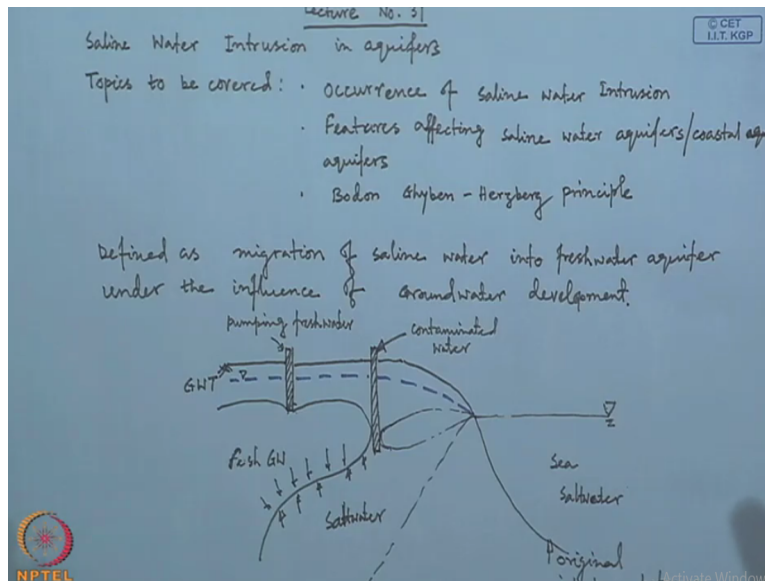 Lecture No. 31
© CET
I.I.T. KGP
Saline Water Intrusion in aquifers
Topics to be covered: · Occurrence of saline water Intrusion
· Features affecting saline water aquifers/coastal aq
aquifers
· Bodon Ghyben - Herzberg principle
Defined as migration of saline water into freshwater aquifer
under the influence of Groundwater development.
pumping freshwater
contaminated
water
GWT
Fresh GW
Saltwater
Sea
Saltwater
original
NPTEL
Activate Windows